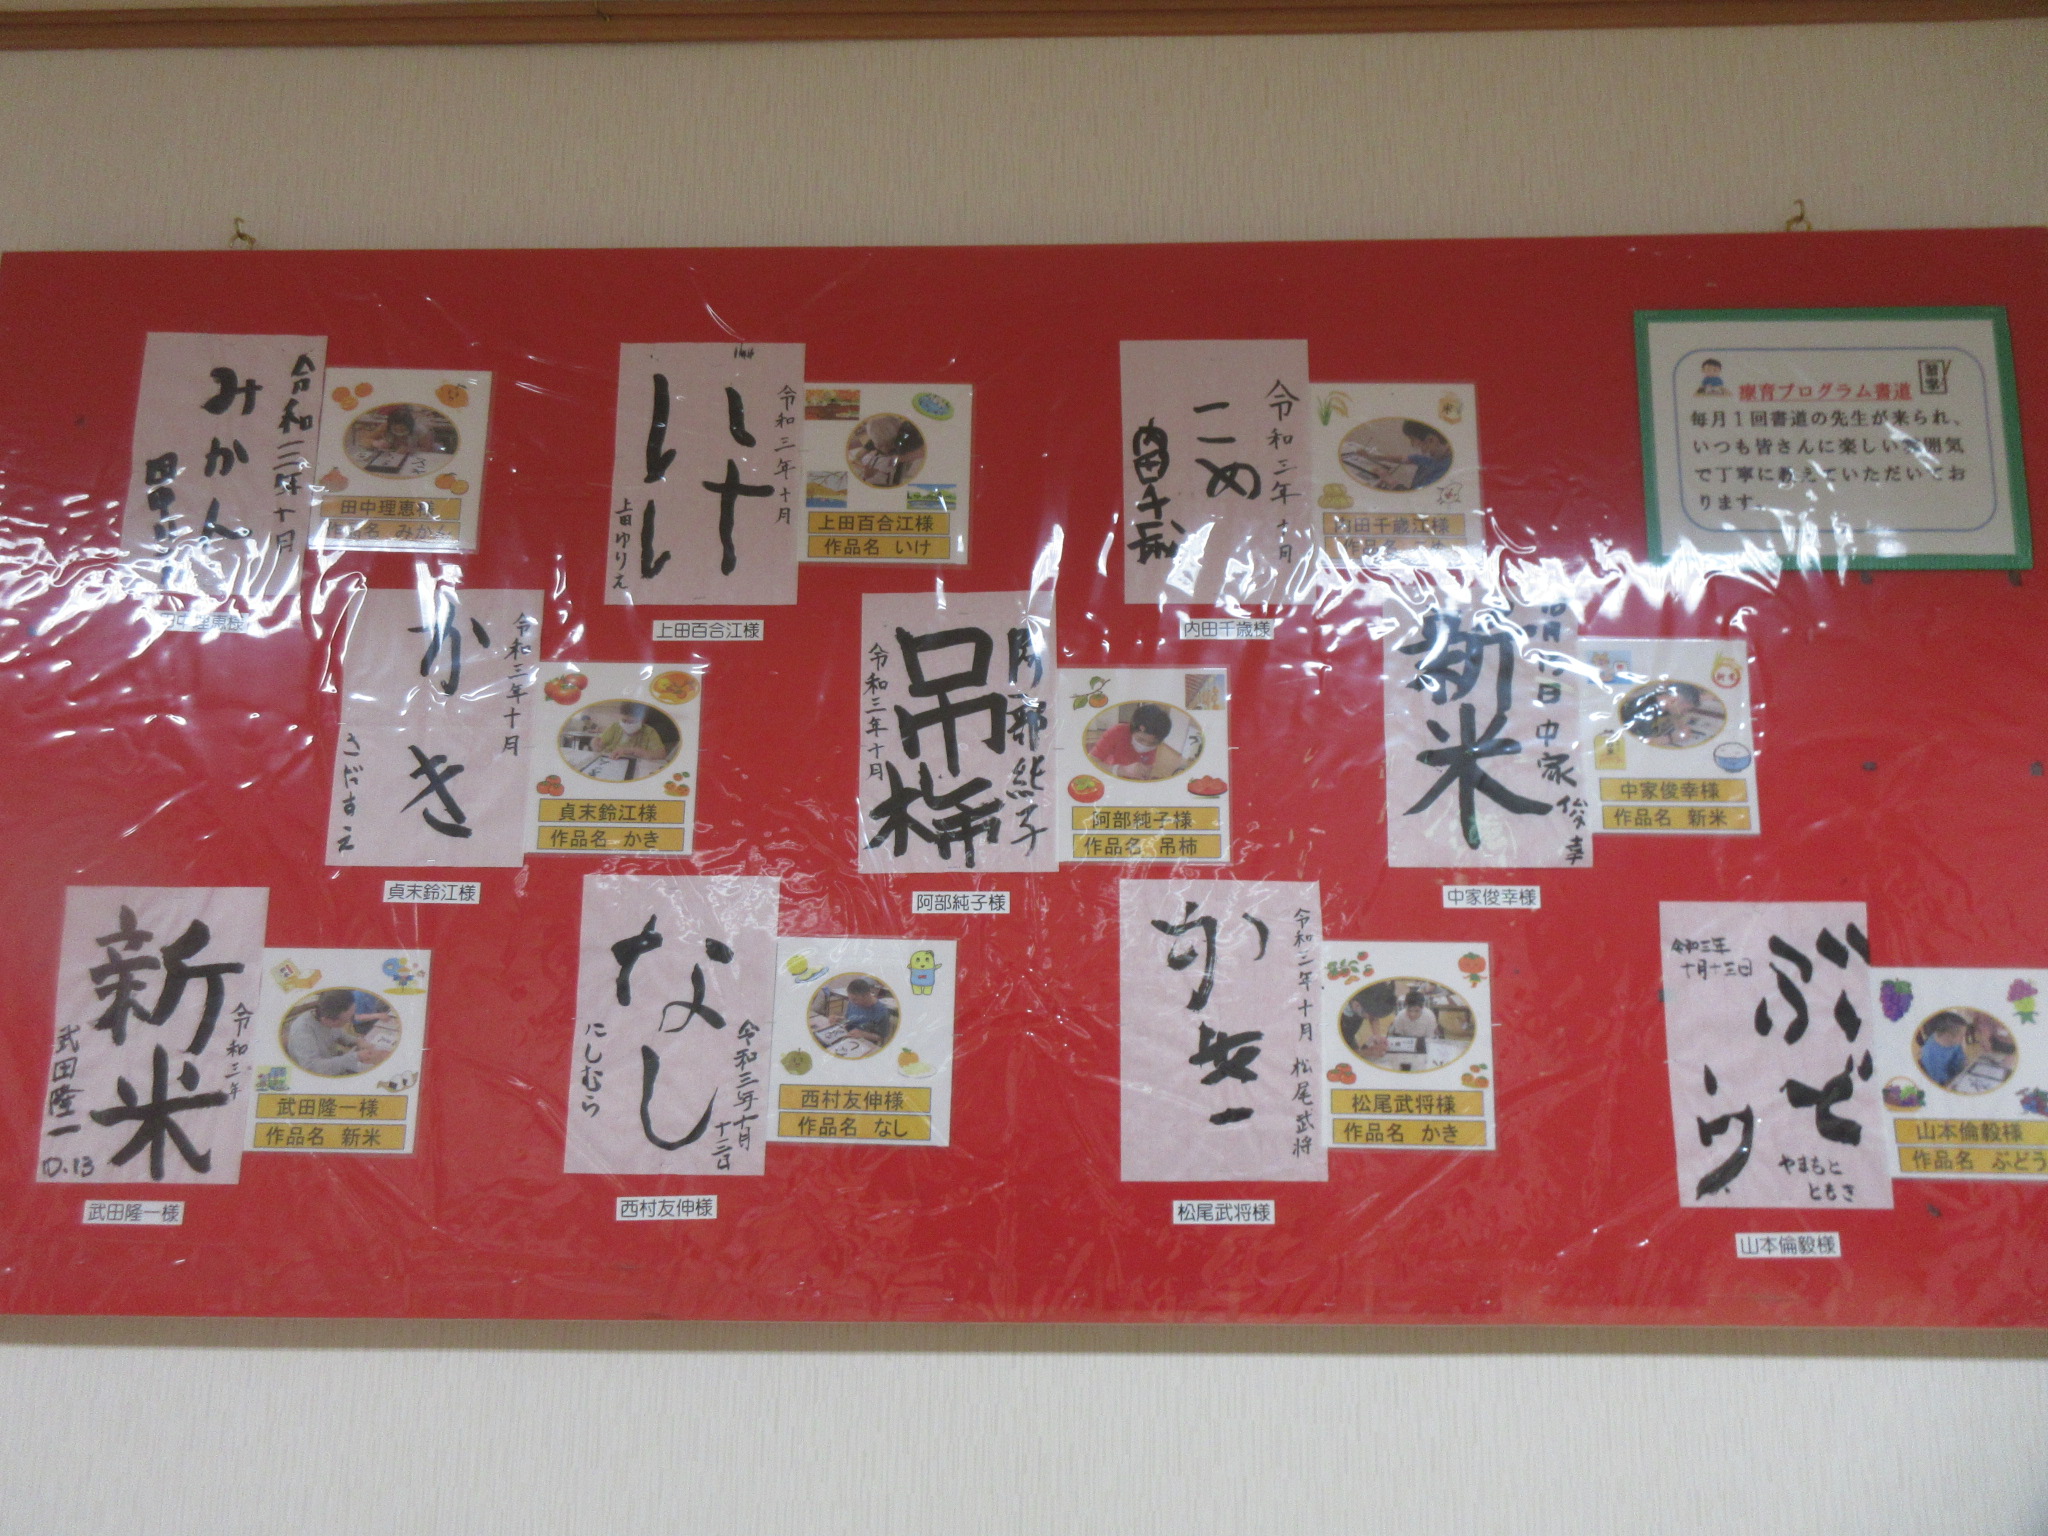 療育プログラム書道
毎月1回書道の先生が来られ、
いつも皆さんに楽しい雰囲気
で丁寧に教えていただいてお
ります。
令和三年十月
みかん
田中理恵様
作品名 みかん
田中理恵様
令和三年十月
いけ
上田ゆりえ
上田百合江様
作品名 いけ
上田百合江様
令和三年十月
こめ
内田千歳
内田千歳江様
作品名 こめ
内田千歳様
令和三年十月
かき
さだすえ
貞末鈴江様
作品名 かき
貞末鈴江様
阿部純子
吊柿
令和三年十月
阿部純子様
作品名 吊柿
阿部純子様
日 中家俊幸
新米
中家俊幸様
作品名 新米
中家俊幸様
新米
令和三年
武田隆一
10.13
武田隆一様
作品名 新米
武田隆一様
なし
令和三年十月
十三日
にしむら
西村友伸様
作品名 なし
西村友伸様
令和三年十月 松尾武将
かき
松尾武将様
作品名 かき
松尾武将様
ぶどう
令和三年
十月十三日
やまもと
ともき
山本倫毅様
作品名 ぶどう
山本倫毅様